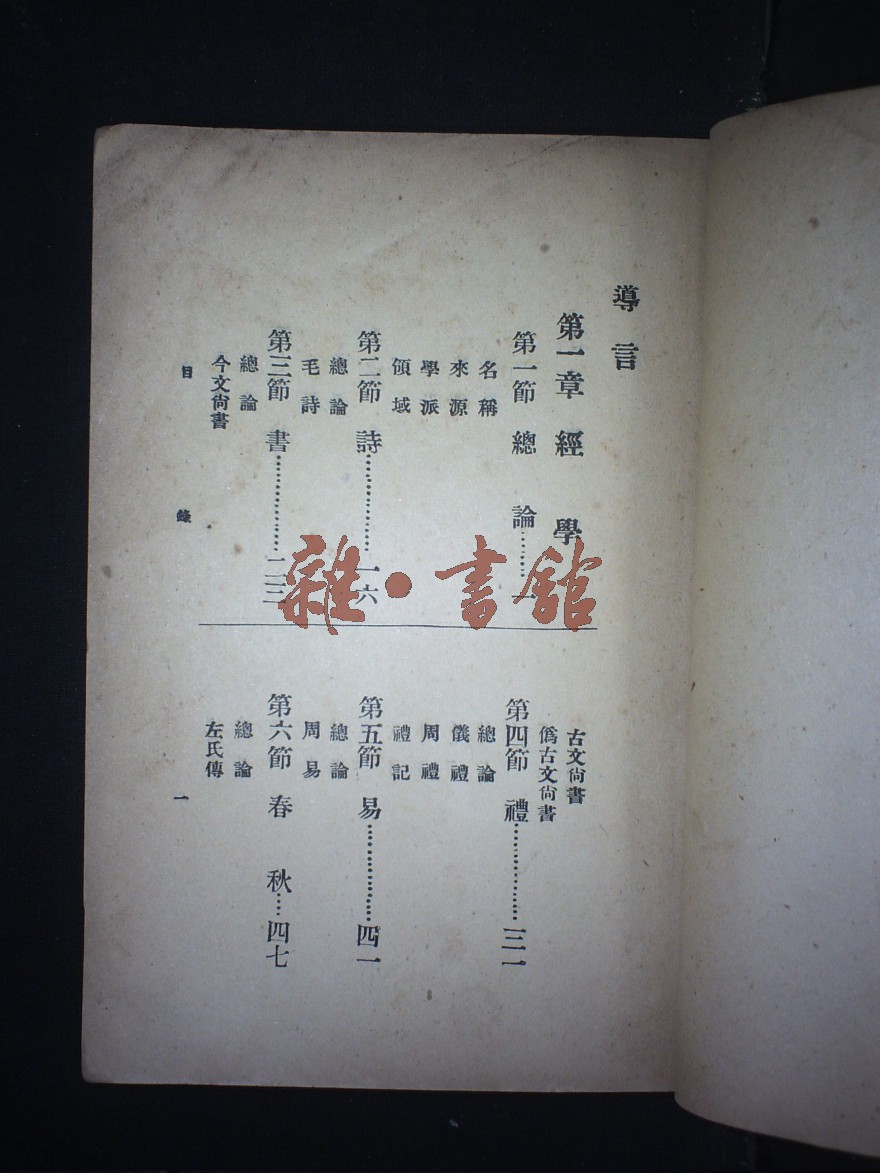 導言
第一章 經學
第一節 總論………一
名稱
來源
學派
領域
第二節 詩……………一六
總論
毛詩
第三節 書……………二三
總論
今文尙書
古文尙書
僞古文尙書
第四節 禮……………三一
總論
儀禮
周禮
禮記
第五節 易……………四一
總論
周易
第六節 春秋……四七
總論
左氏傳
目錄 一
雜·書館